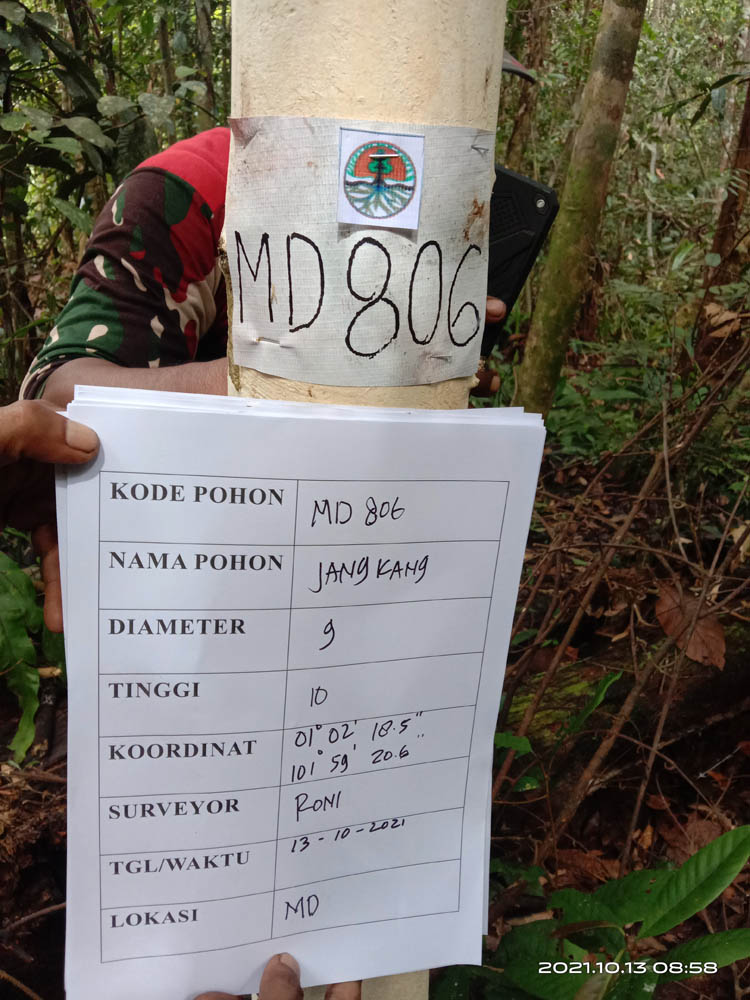 MD 806
KODE POHON MD 806
NAMA POHON JANGKANG
DIAMETER 9
TINGGI 10
KOORDINAT 01° 02' 18.5"
101° 59' 20.6"
SURVEYOR RONI
TGL/WAKTU 13-10-2021
LOKASI MD
2021.10.13 08:58